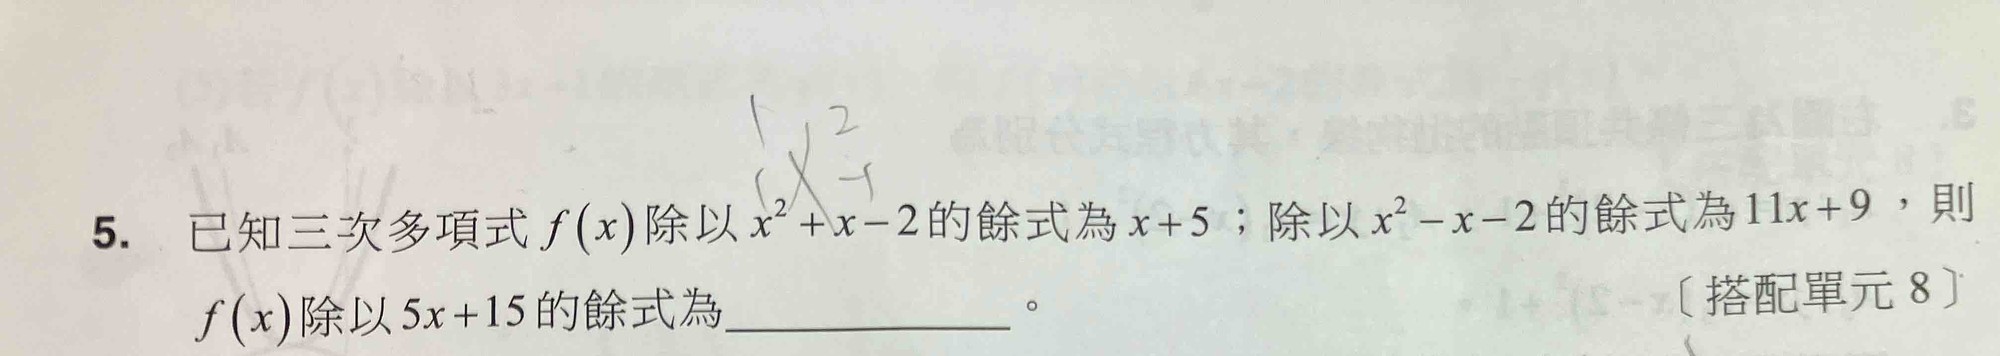 1 2
1 -1
5. 已知三次多項式 f(x) 除以 x²+x−2 的餘式為 x+5；除以 x²−x−2 的餘式為 11x+9，則
f(x) 除以 5x+15 的餘式為____________。 〔搭配單元 8〕